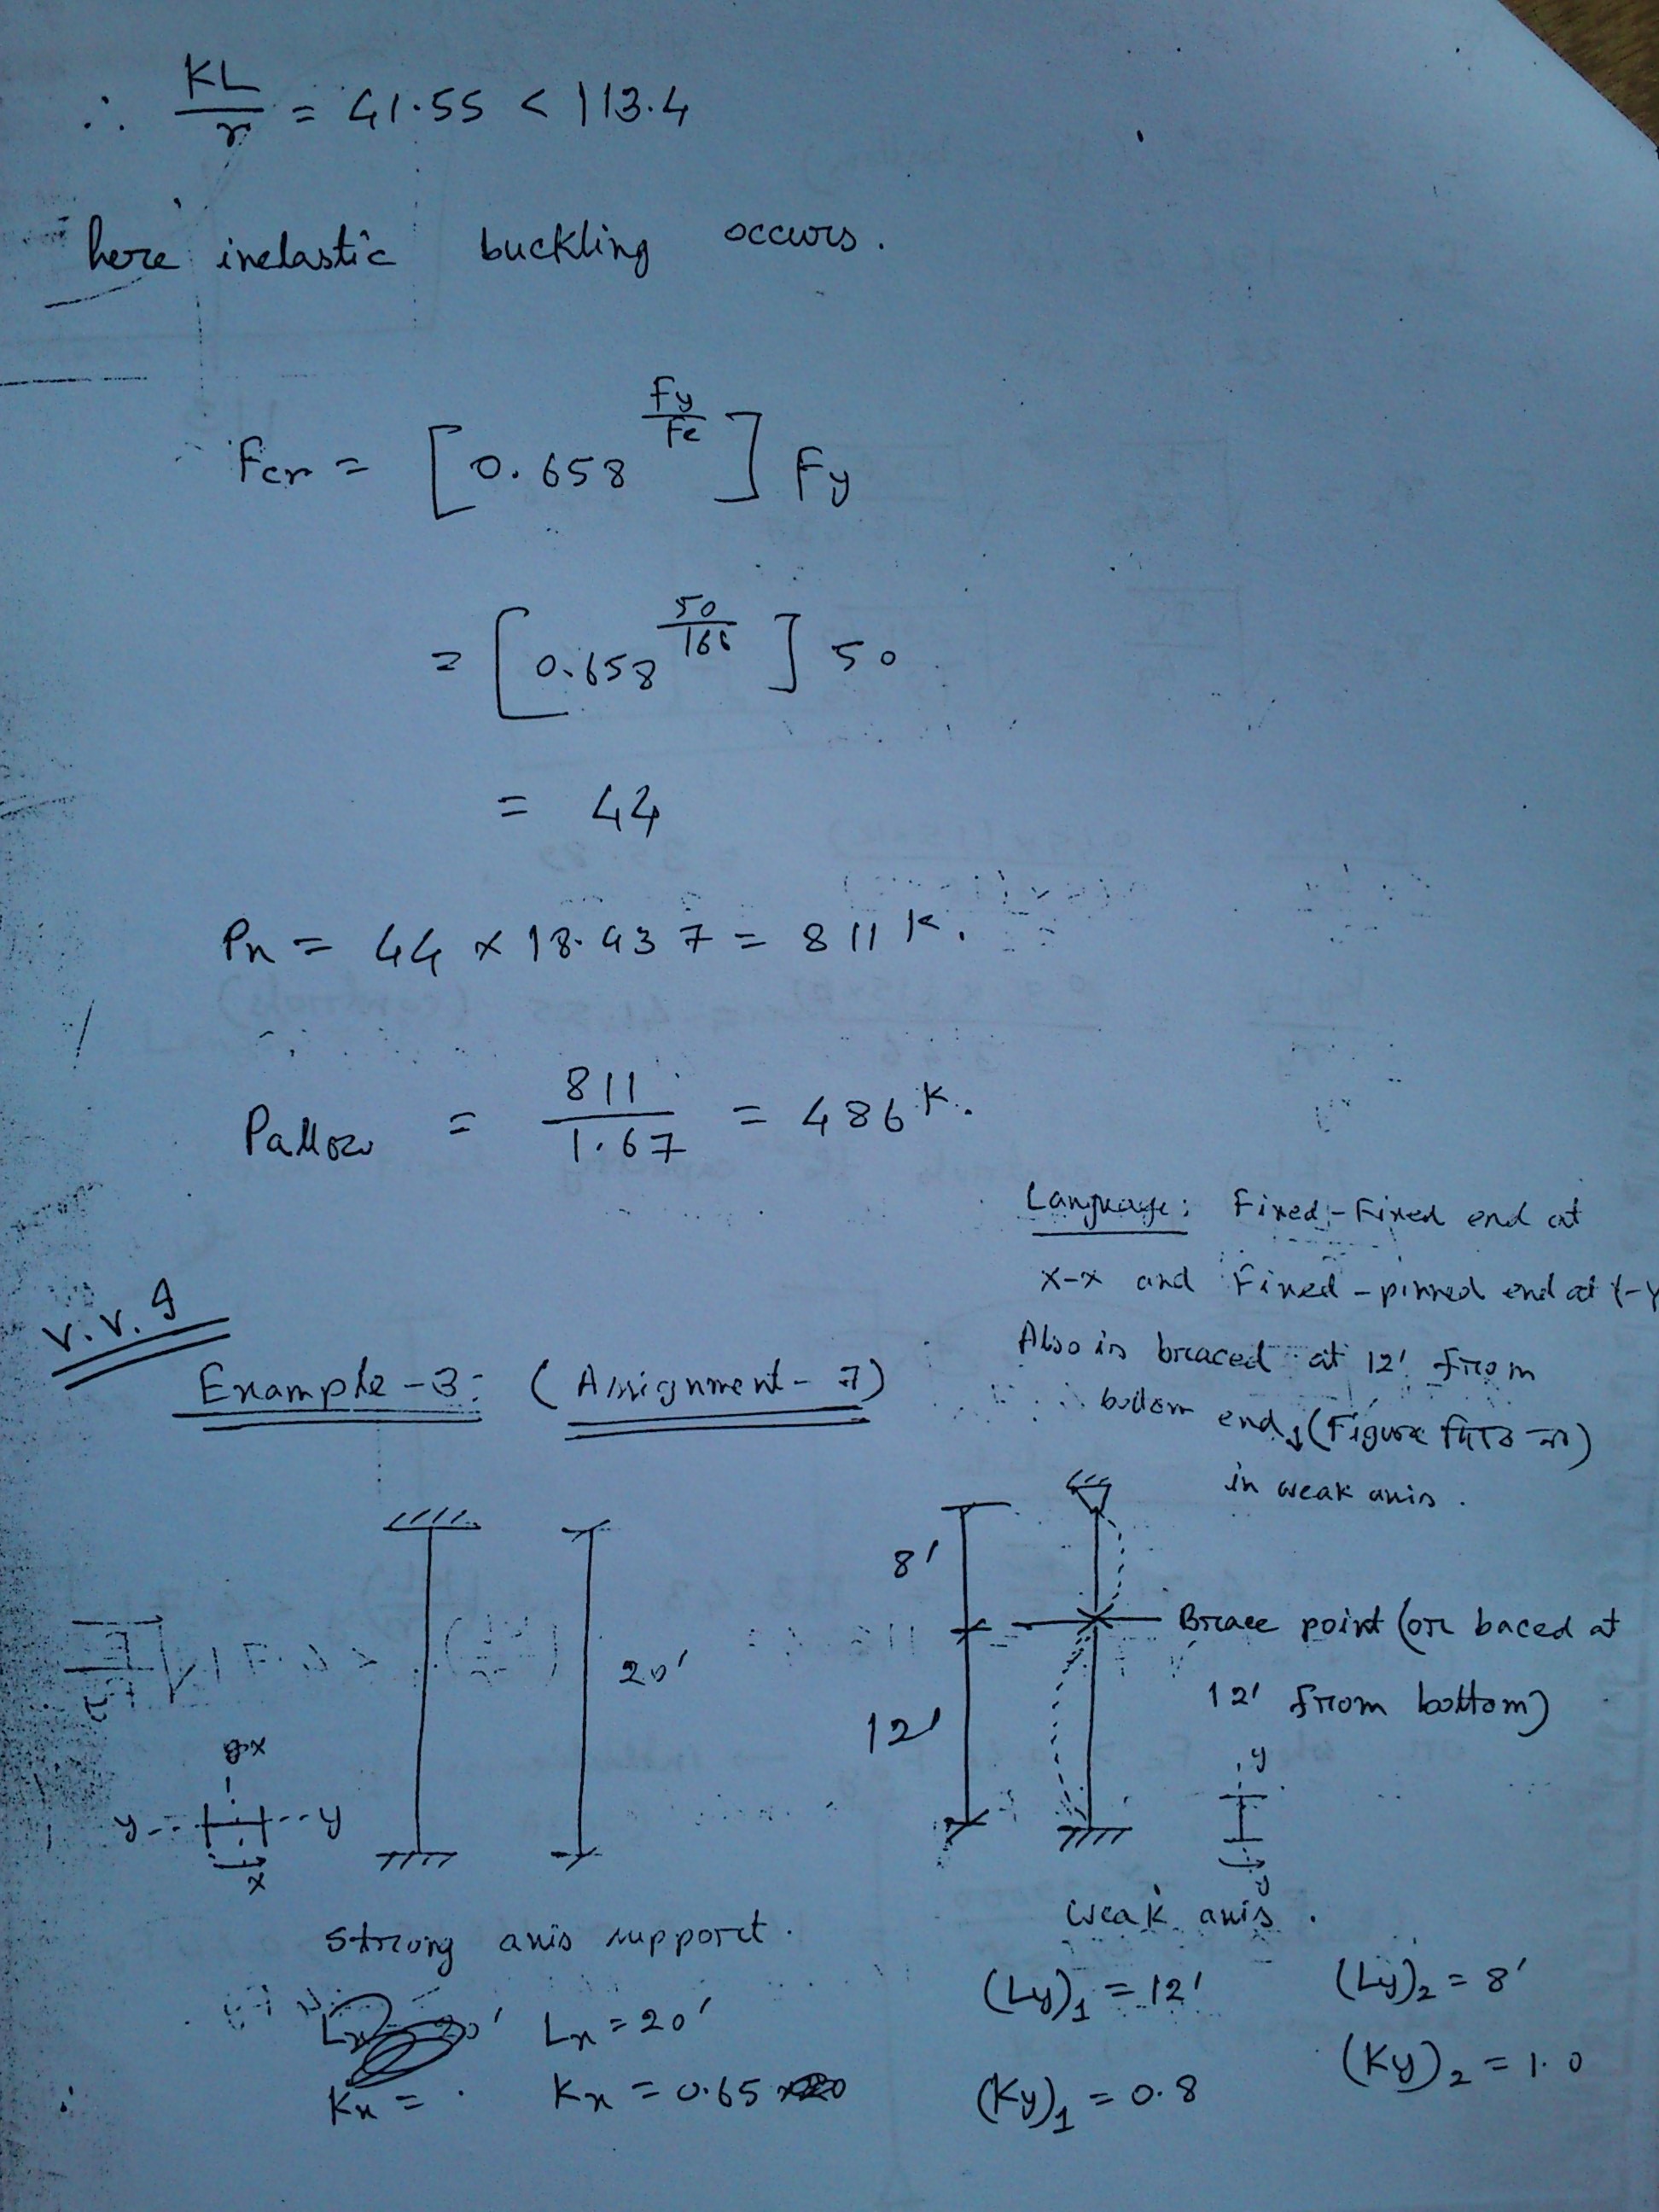 ∴ KL/r = 41.55 < 113.4
here inelastic buckling occurs.
Fcr = [0.658^(Fy/Fe)] Fy
= [0.658^(50/166)] 50
= 44
Pn = 44 × 18.437 = 811 K.
Pallow = 811/1.67 = 486 K.
Language: Fixed-Fixed end at
X-X and Fixed-pinned end at Y-Y
Also is braced at 12' from
bottom end, (Figure
in weak axis.
V.V.I
Example-3: (Assignment-7)
20'
8'
12'
Brace point (or baced at
12' from bottom)
x
y y
x
y
y
Strong axis support.
Lx = 20'
Kx =
Kx = 0.65
weak axis.
(Ly)1 = 12'
(Ly)2 = 8'
(Ky)1 = 0.8
(Ky)2 = 1.0